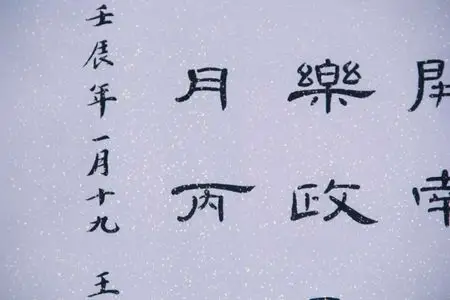 開南
樂政
月丙
壬辰年一月十九 王